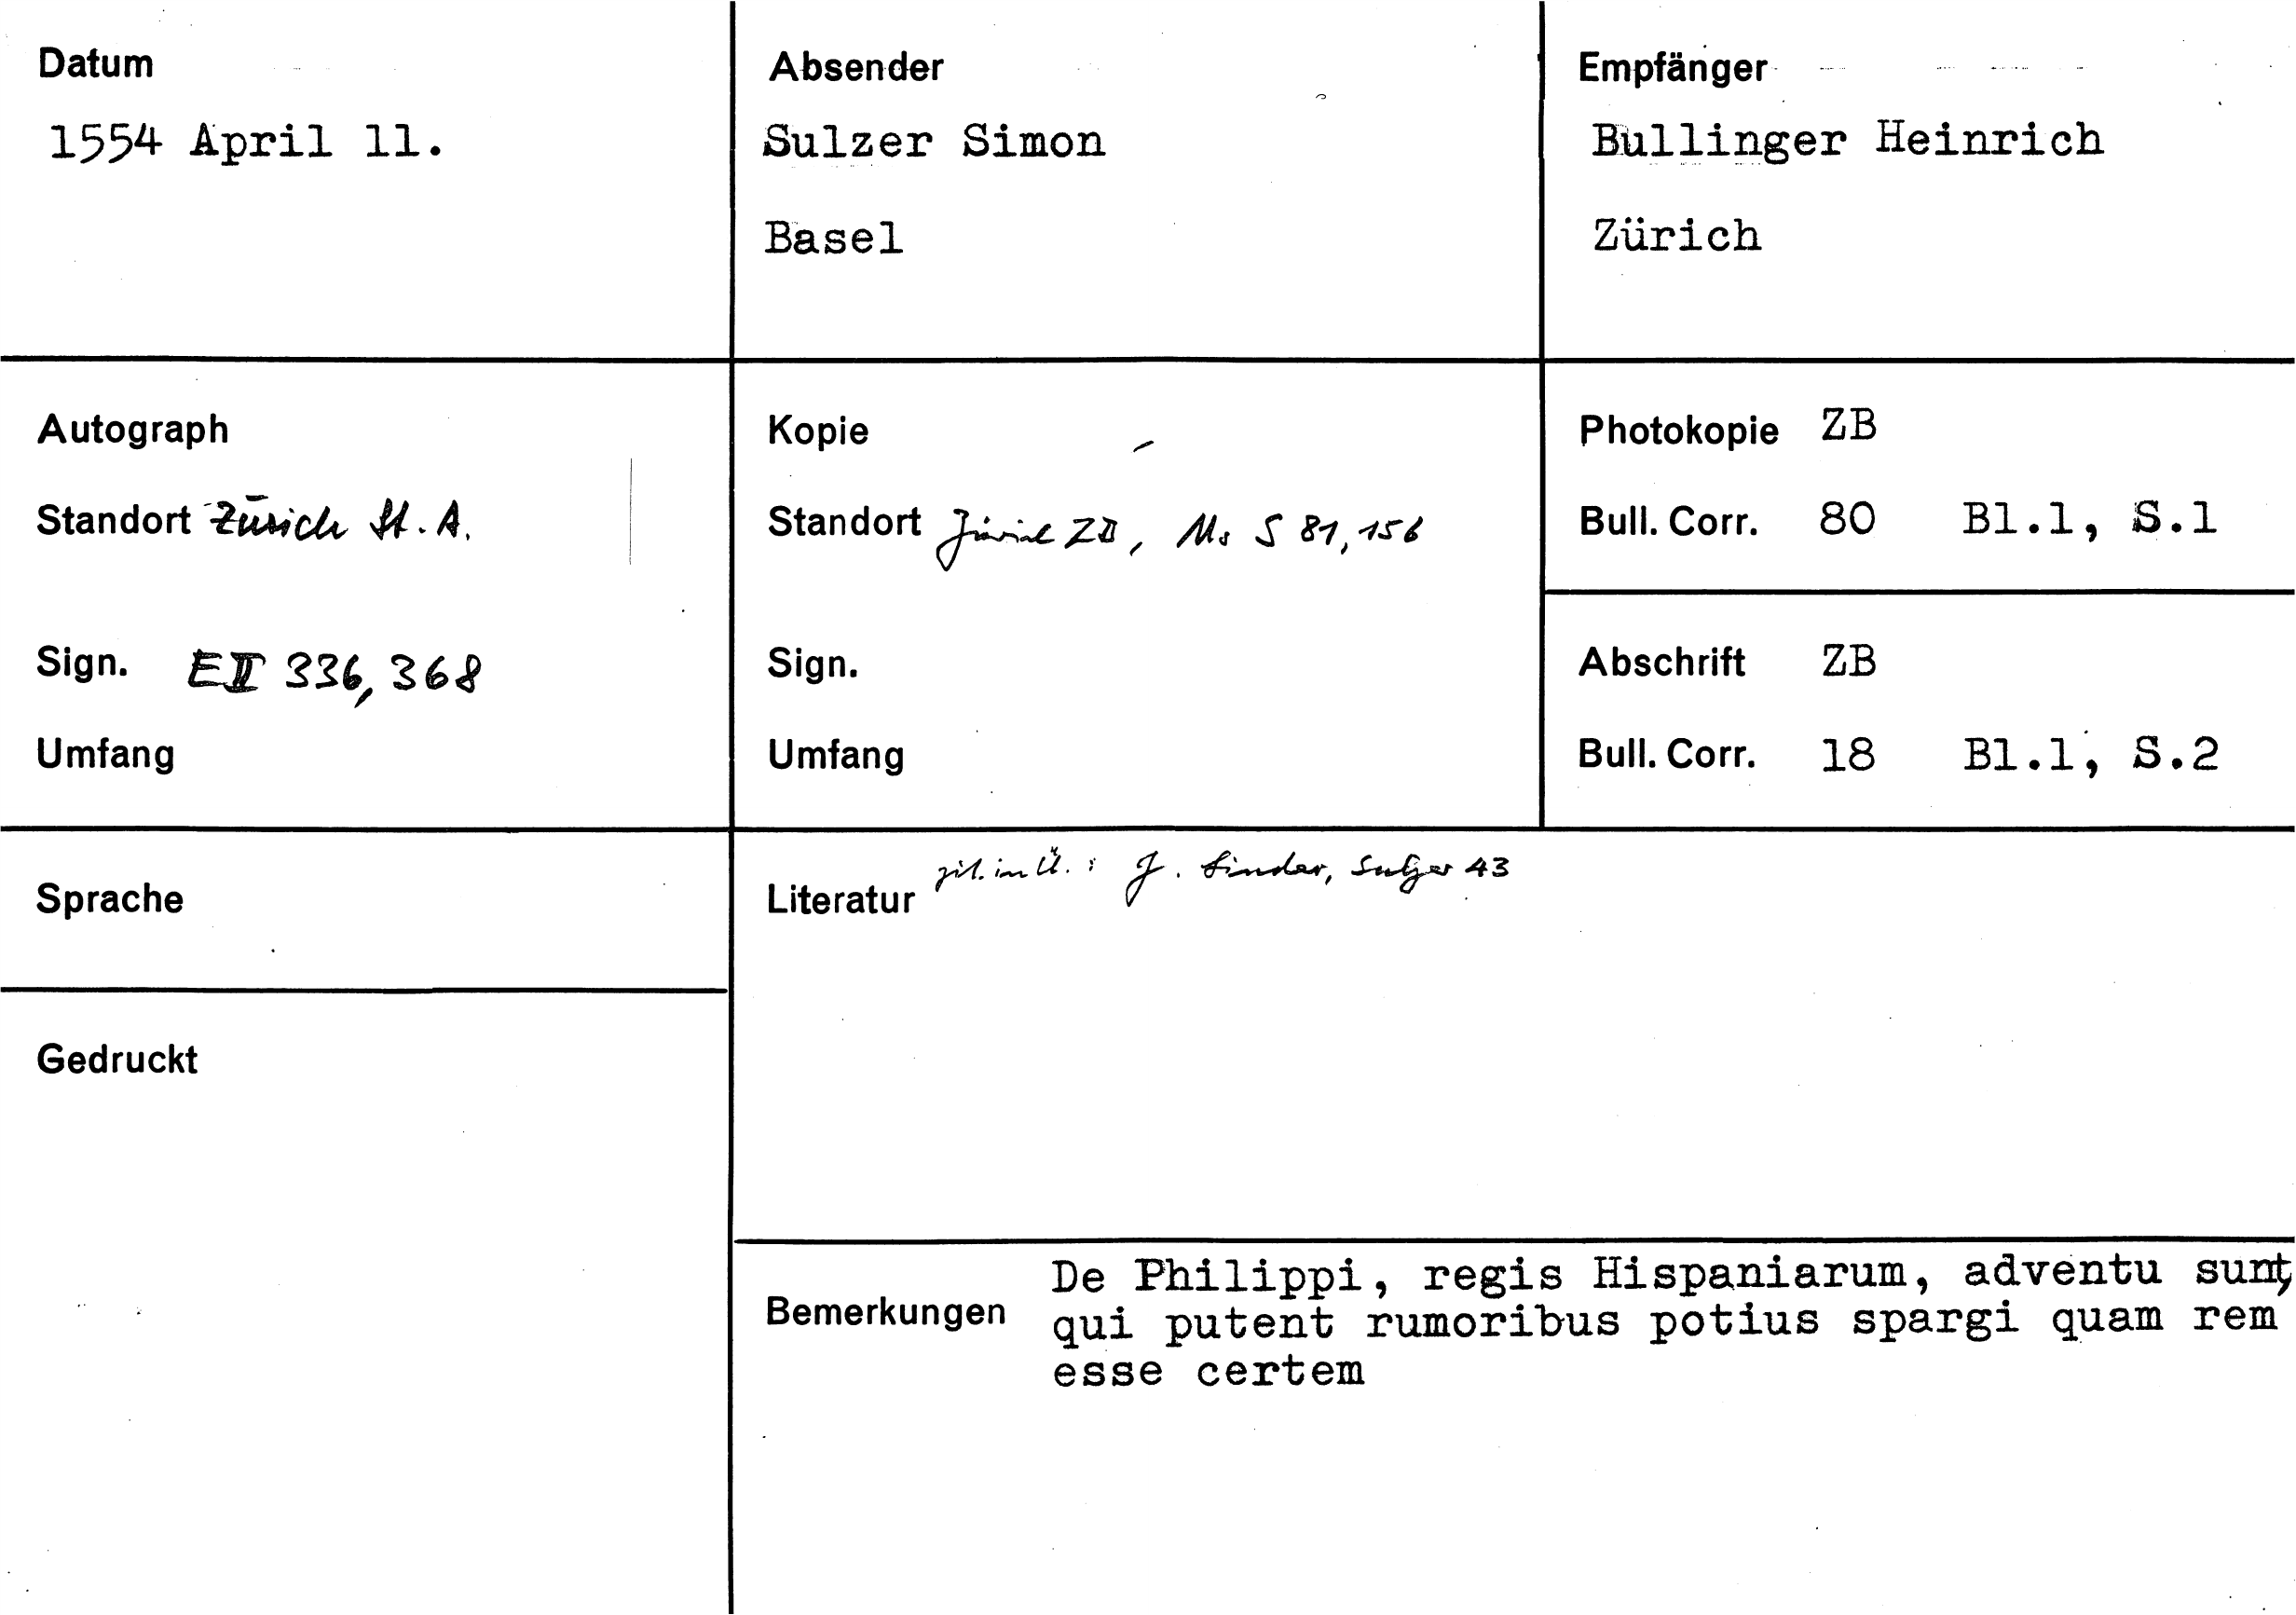 Datum
1554 April 11.
Absender
Sulzer Simon
Basel
Empfänger
Bullinger Heinrich
Zürich
Autograph
Standort Zürich St. A.
Sign. EII 336, 368
Umfang
Kopie
Standort Zürich ZB, Ms S 81, 156
Sign.
Umfang
Photokopie ZB
Bull. Corr. 80 Bl.1, S.1
Abschrift ZB
Bull. Corr. 18 Bl.1, S.2
Sprache
Gedruckt
Literatur zit. in Ü. : J. Linder, Sulzer 43
Bemerkungen
De Philippi, regis Hispaniarum, adventu sunt,
qui putent rumoribus potius spargi quam rem
esse certem